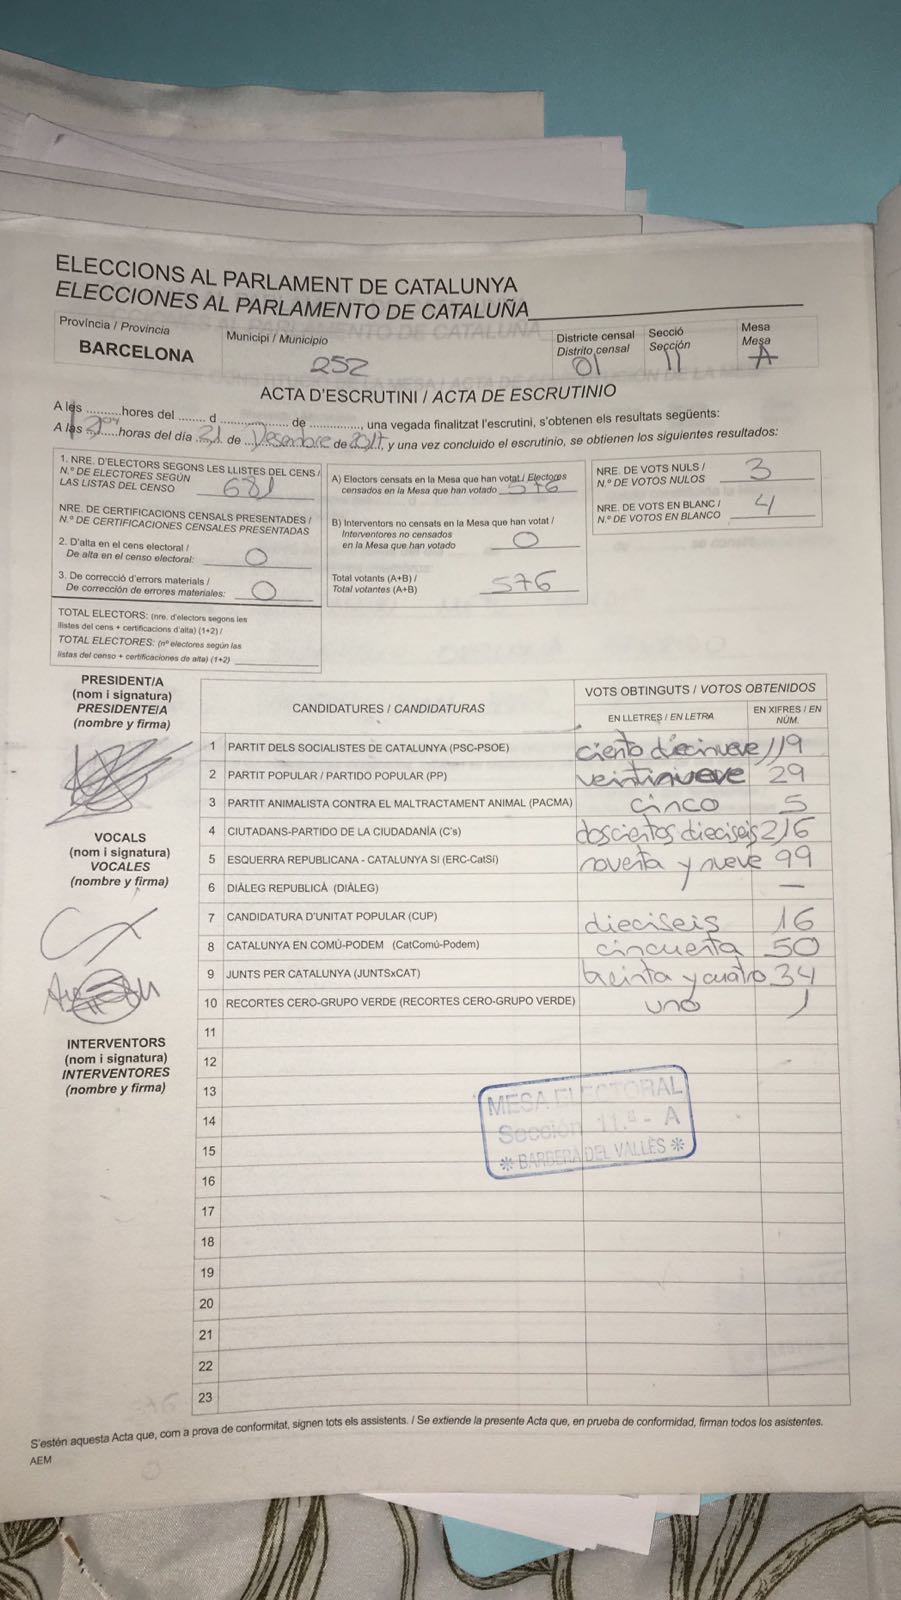 ELECCIONS AL PARLAMENT DE CATALUNYA
ELECCIONES AL PARLAMENTO DE CATALUÑA
Província / Provincia
BARCELONA
Municipi / Municipio
252
Districte censal
Distrito censal
01
Secció
Sección
11
Mesa
Mesa
A
ACTA D'ESCRUTINI / ACTA DE ESCRUTINIO
A les ..........hores del ........ d .................. de .............., una vegada finalitzat l'escrutini, s'obtenen els resultats següents:
A las ..........horas del día 21 de Desembre de 2017, y una vez concluido el escrutinio, se obtienen los siguientes resultados:
1. NRE. D'ELECTORS SEGONS LES LLISTES DEL CENS /
N.º DE ELECTORES SEGÚN
LAS LISTAS DEL CENSO 681
NRE. DE CERTIFICACIONS CENSALS PRESENTADES /
N.º DE CERTIFICACIONES CENSALES PRESENTADAS
2. D'alta en el cens electoral /
De alta en el censo electoral: 0
3. De correcció d'errors materials /
De corrección de errores materiales: 0
TOTAL ELECTORS: (nre. d'electors segons les
llistes del cens + certificacions d'alta) (1+2) /
TOTAL ELECTORES: (nº electores según las
listas del censo + certificaciones de alta) (1+2)
A) Electors censats en la Mesa que han votat / Electores
censados en la Mesa que han votado 576
B) Interventors no censats en la Mesa que han votat /
Interventores no censados
en la Mesa que han votado 0
Total votants (A+B) /
Total votantes (A+B) 576
NRE. DE VOTS NULS /
N.º DE VOTOS NULOS 3
NRE. DE VOTS EN BLANC /
N.º DE VOTOS EN BLANCO 4
PRESIDENT/A
(nom i signatura)
PRESIDENTE/A
(nombre y firma)
VOCALS
(nom i signatura)
VOCALES
(nombre y firma)
INTERVENTORS
(nom i signatura)
INTERVENTORES
(nombre y firma)
CANDIDATURES / CANDIDATURAS
VOTS OBTINGUTS / VOTOS OBTENIDOS
EN LLETRES / EN LETRA
EN XIFRES / EN
NÚM.
1 PARTIT DELS SOCIALISTES DE CATALUNYA (PSC-PSOE) ciento diecinueve 119
2 PARTIT POPULAR / PARTIDO POPULAR (PP) veintinueve 29
3 PARTIT ANIMALISTA CONTRA EL MALTRACTAMENT ANIMAL (PACMA) cinco 5
4 CIUTADANS-PARTIDO DE LA CIUDADANÍA (C's) doscientos dieciseis 216
5 ESQUERRA REPUBLICANA - CATALUNYA SÍ (ERC-CatSí) noventa y nueve 99
6 DIÀLEG REPUBLICÀ (DIÀLEG) —
7 CANDIDATURA D'UNITAT POPULAR (CUP) dieciseis 16
8 CATALUNYA EN COMÚ-PODEM (CatComú-Podem) cincuenta 50
9 JUNTS PER CATALUNYA (JUNTSxCAT) treinta y cuatro 34
10 RECORTES CERO-GRUPO VERDE (RECORTES CERO-GRUPO VERDE) uno 1
11
12
13
14
15
16
17
18
19
20
21
22
23
MESA ELECTORAL
Sección 11.ª - A
* BARBERA DEL VALLÈS *
S'estén aquesta Acta que, com a prova de conformitat, signen tots els assistents. / Se extiende la presente Acta que, en prueba de conformidad, firman todos los asistentes.
AEM